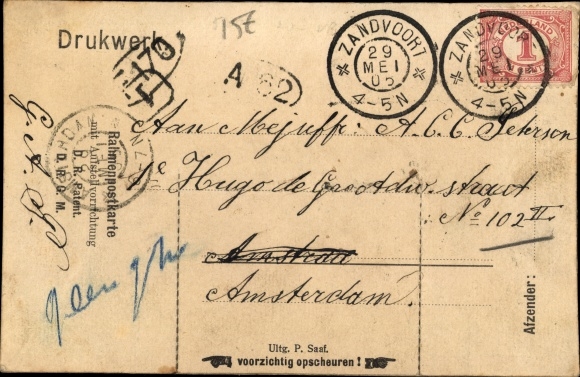 75E
Drukwerk
A 62
ZANDVOORT
29
MEI
05
4-5N
ZANDVOOR
29
MEI
05
4-5N
NEDERLAND
1
Aan Mejuffr. A. C. C. Peterson
1e Hugo de Grootdw. straat
No 102 II
Amsterdam
Rahmenpostkarte
mit Aufstellvorrichtung
D. R. Patent.
D. R. G. M.
Afzender:
Uitg. P. Saaf.
voorzichtig opscheuren!